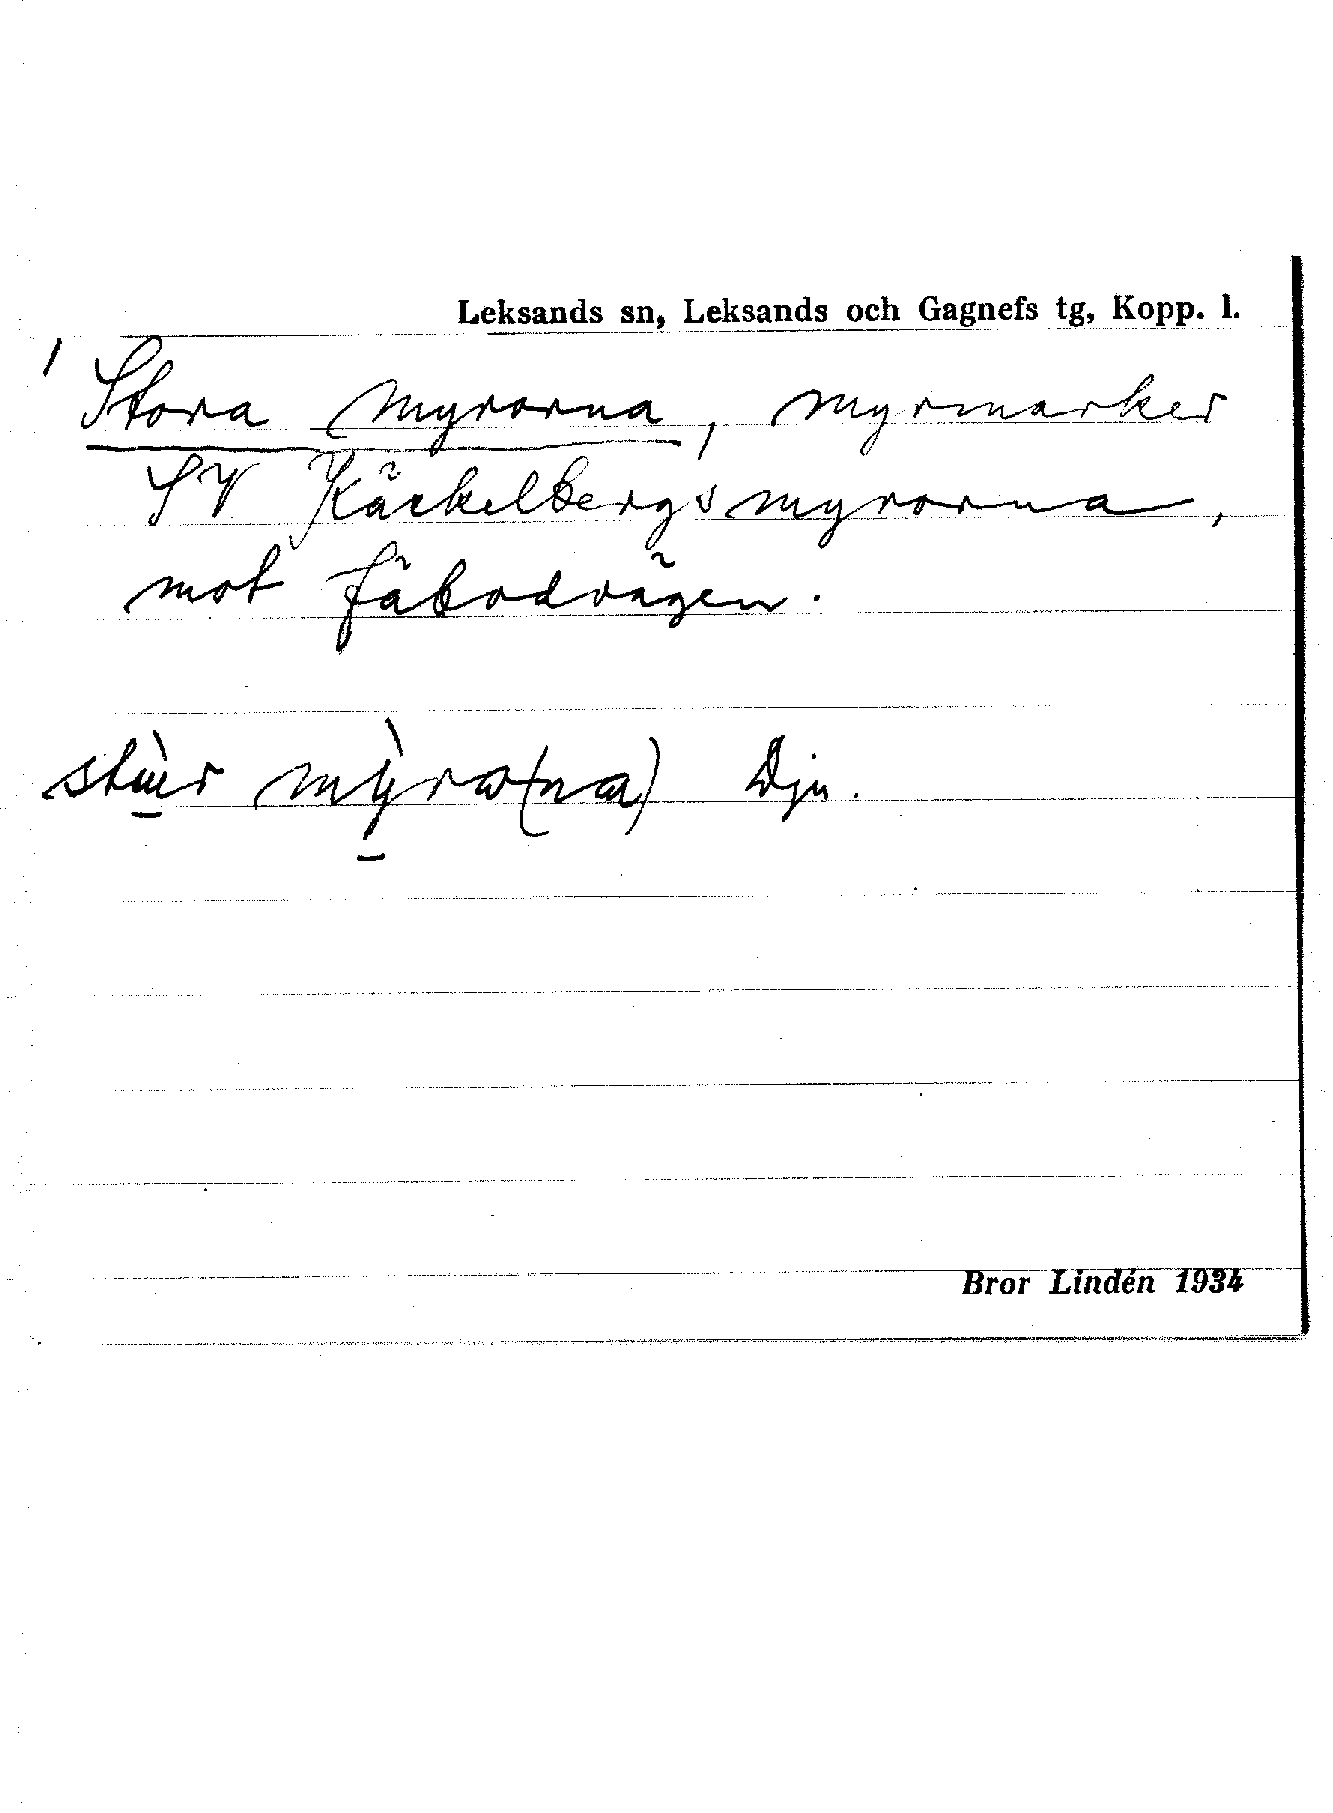 Leksands sn, Leksands och Gagnefs tg, Kopp. l.
Stora myrorna, myrmarker
SV Käckelbergsmyrorna,
mot fäbodvägen.
myra(na) Dju.
Bror Lindén 1934